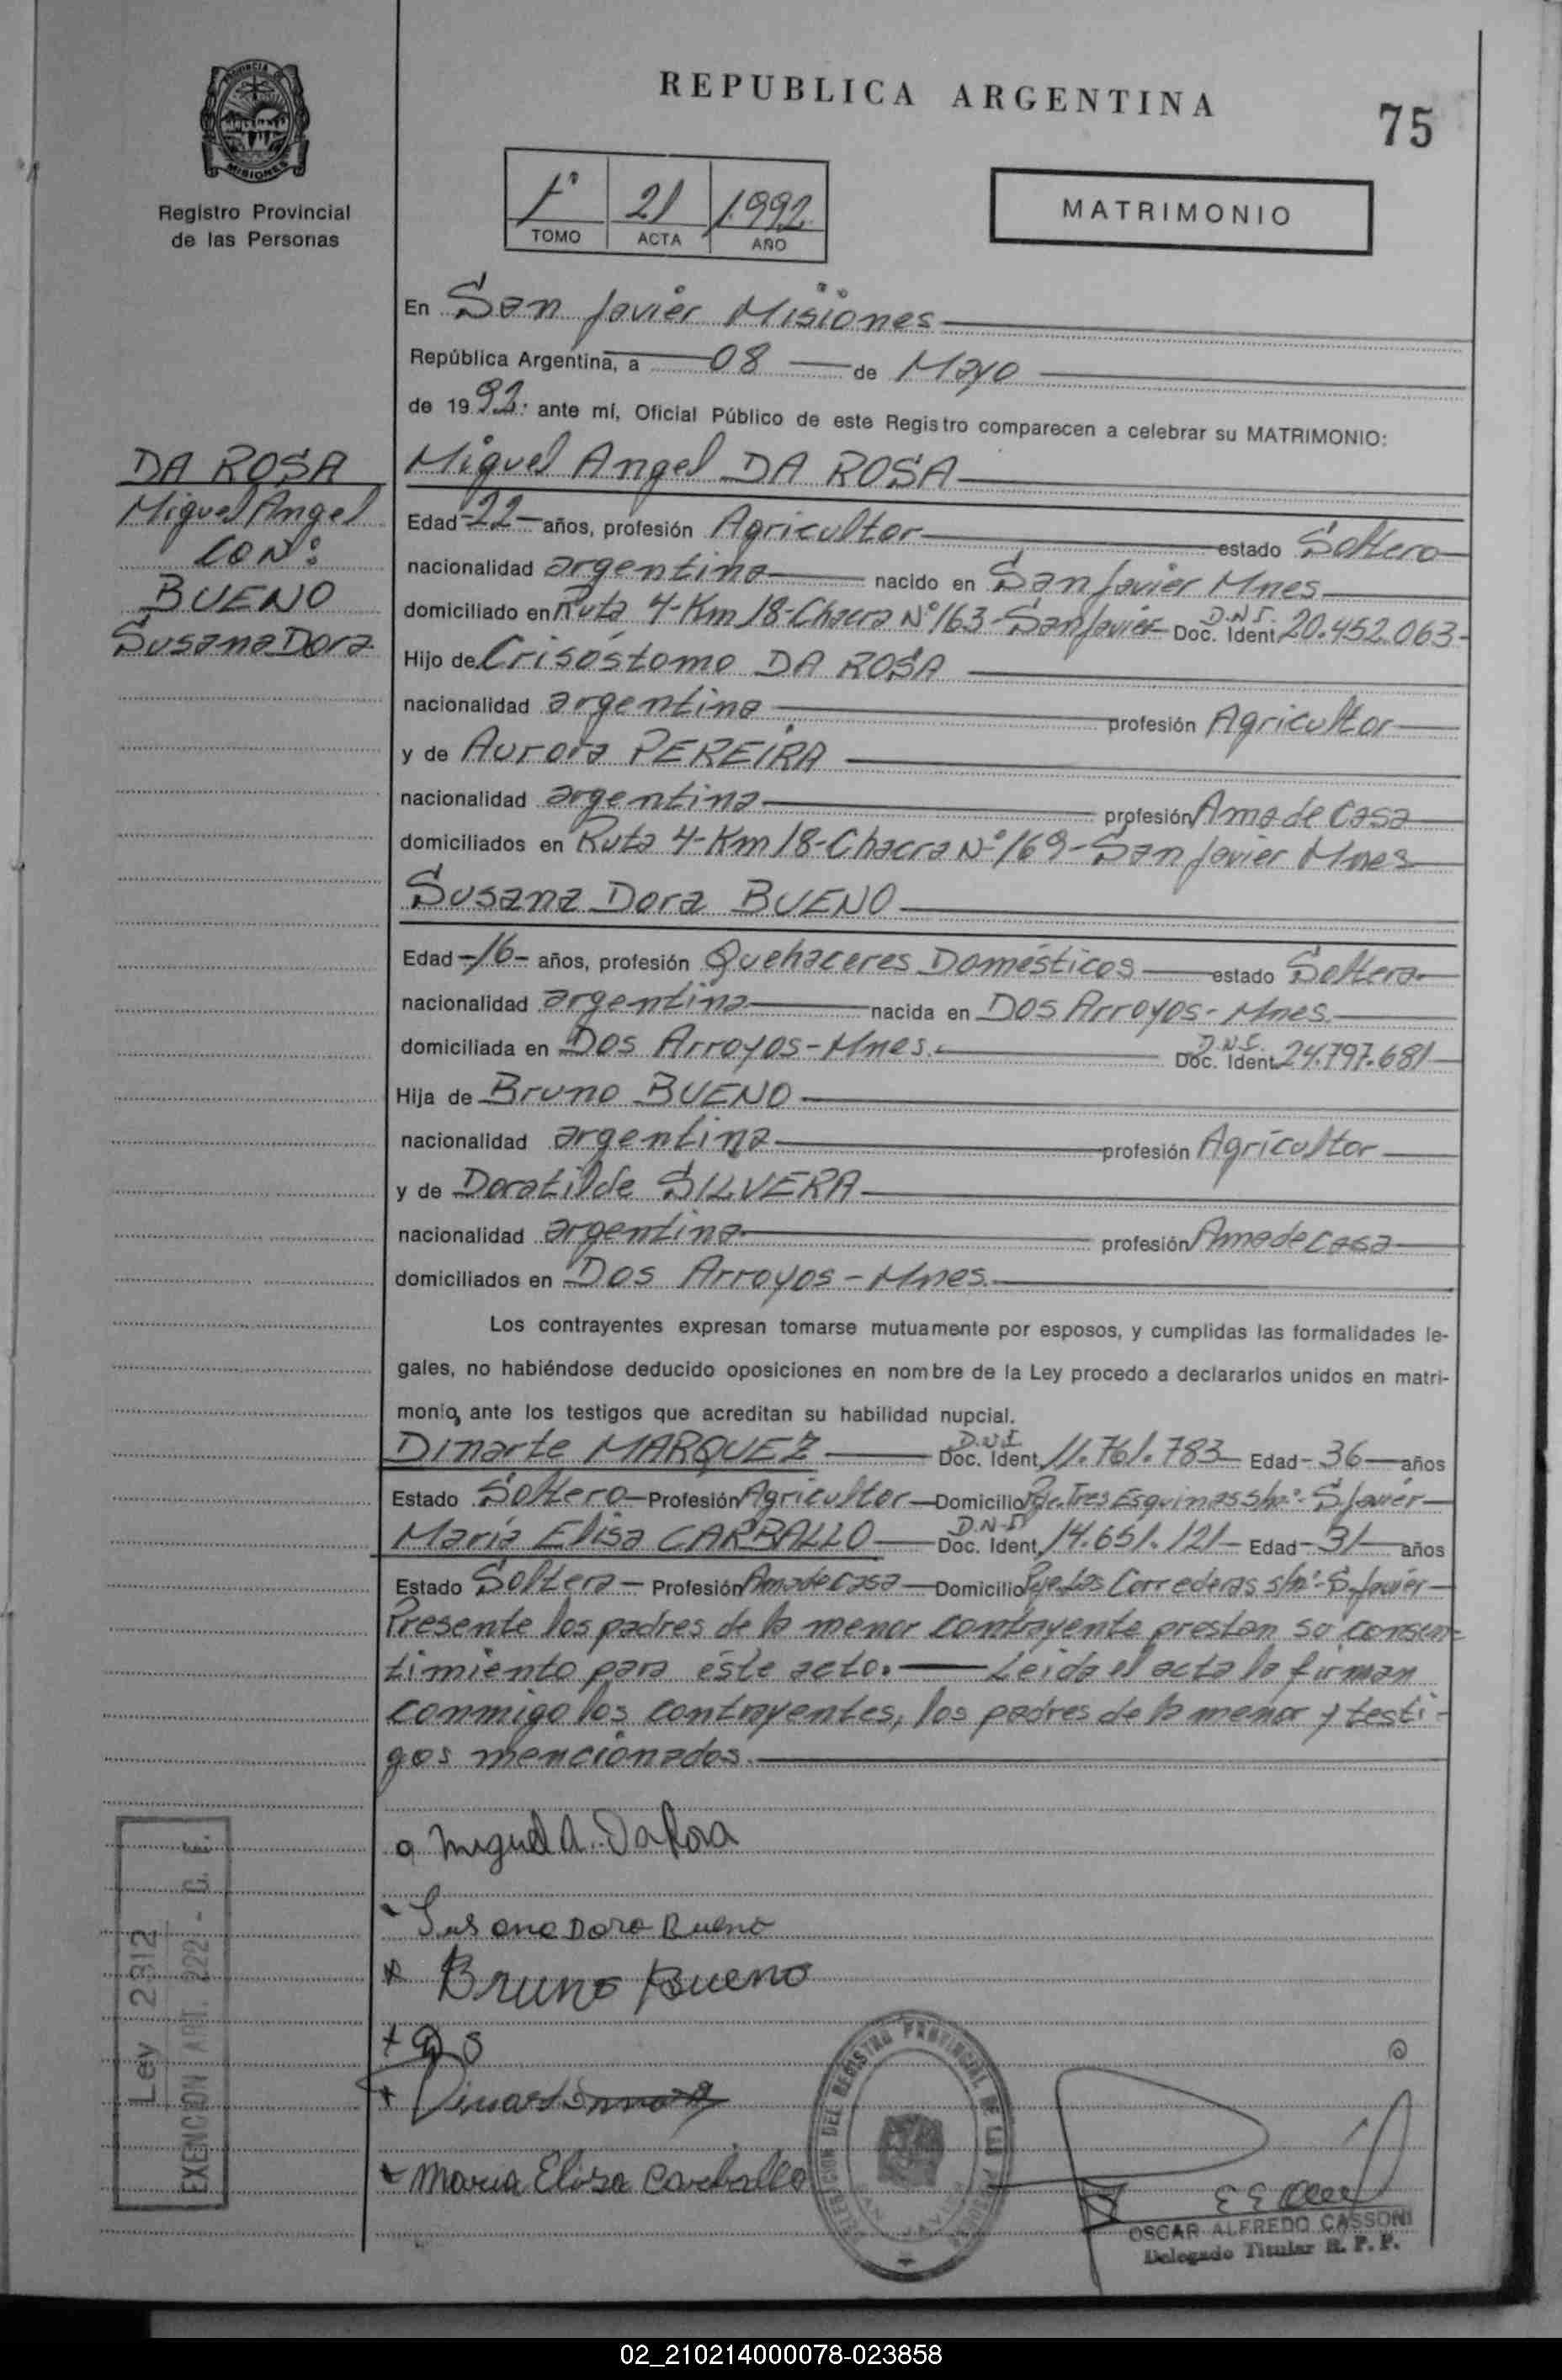 REPUBLICA ARGENTINA
75
PROVINCIA DE
MISIONES
Registro Provincial
de las Personas
1º 21 1992
TOMO ACTA AÑO
MATRIMONIO
En San Javier Misiones
República Argentina, a 08 de Mayo
de 1992. ante mí, Oficial Público de este Registro comparecen a celebrar su MATRIMONIO:
DA ROSA
Miguel Angel
CON:
BUENO
Susana Dora
Miguel Angel DA ROSA
Edad -22- años, profesión Agricultor estado Soltero
nacionalidad argentina nacido en San Javier Mnes.
domiciliado en Ruta 4-Km 18-Chacra Nº163-San Javier D.N.I. Doc. Ident. 20.452.063-
Hijo de Crisóstomo DA ROSA
nacionalidad argentina profesión Agricultor
y de Aurora PEREIRA
nacionalidad argentina profesión Ama de Casa
domiciliados en Ruta 4-Km 18-Chacra Nº 169-San Javier Mnes
Susana Dora BUENO
Edad -16- años, profesión Quehaceres Domésticos estado Soltera
nacionalidad argentina nacida en Dos Arroyos-Mnes.
domiciliada en Dos Arroyos-Mnes. D.N.I. Doc. Ident. 24.797.681
Hija de Bruno BUENO
nacionalidad argentina profesión Agricultor
y de Doratilde SILVERA
nacionalidad argentina profesión Ama de casa
domiciliados en Dos Arroyos-Mnes.
Los contrayentes expresan tomarse mutuamente por esposos, y cumplidas las formalidades le-
gales, no habiéndose deducido oposiciones en nombre de la Ley procedo a declararlos unidos en matri-
monio, ante los testigos que acreditan su habilidad nupcial.
Dinarte MARQUEZ D.N.I Doc. Ident. 11.761.783 Edad -36- años
Estado Soltero Profesión Agricultor Domicilio Pje. Tres Esquinas s/nº-S. Javier
María Elisa CARBALLO D.N.I Doc. Ident. 14.651.121 Edad -31- años
Estado Soltera Profesión Ama de casa Domicilio Pje. Las Correderas s/nº-S. Javier
Presente los padres de la menor contrayente prestan su consen-
timiento para éste acto. Leida el acta la firman
conmigo los contrayentes, los padres de la menor y testi-
gos mencionados.
Miguel A. Da Rosa
Susana Dora Bueno
Bruno Bueno
D S
Maria Elisa Carballo
Ley 2812
EXENCION ART. 222 - C. F.
DELEGACION DEL REGISTRO PROVINCIAL DE LAS PERSONAS
SAN JAVIER
OSCAR ALFREDO CASSONI
Delegado Titular R. P. P.
02_210214000078-023858